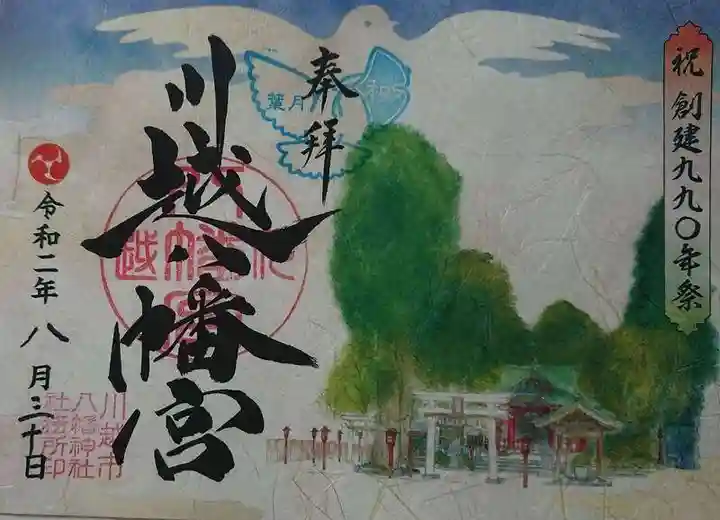 祝 創建九九〇年祭
奉拝
川越八幡宮
令和二年 八月三十日
葉月
和
川越市
八幡神社
社務所印